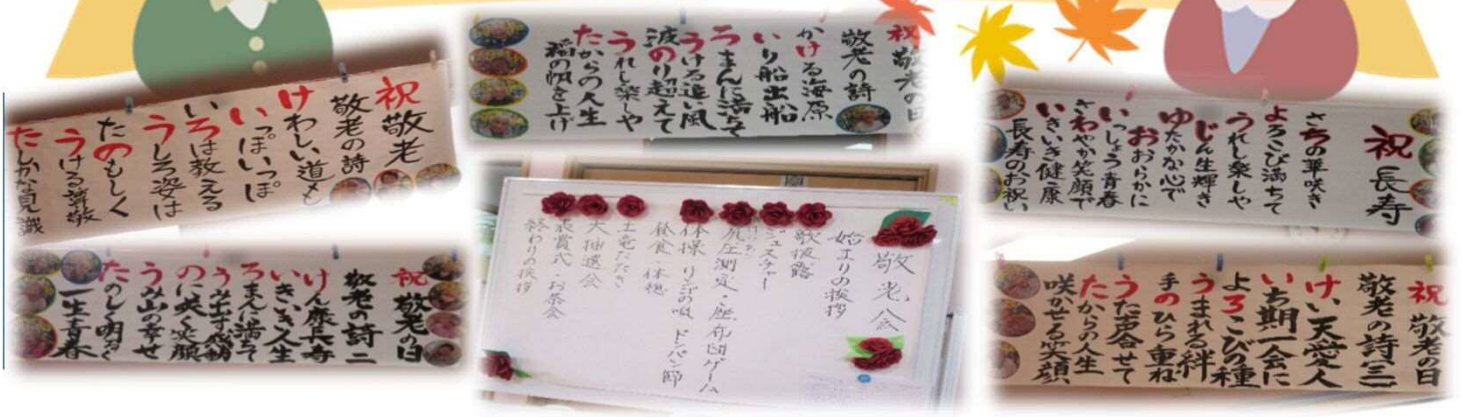 祝敬老
敬老の詩
けわしい道も
いっぽいっぽ
いろは教える
うしろ姿は
たのもしく
うける尊敬
たしかな見識
祝敬老の日
敬老の詩
かける海原
いり船出船
ろまんに満ちて
うける追い風
波のり超えて
うれし楽しや
たからの人生
福の帆を上げ
祝長寿
さちの華咲き
よろこび満ちて
うれし楽しや
じん生輝き
ゆたかな心で
おおらかに
いっしょう青春
さわやか笑顔で
いきいき健康
長寿のお祝い
祝敬老の日
敬老の詩二
けん康長寿
いきいき人生
ろまんに満ちて
うみ出す感動
のに咲く笑顔
うみ山の幸せ
たのしく明るく
一生青春
敬老会
始まりの挨拶
歌披露
ジェスチャー
測定・座布団ゲーム
体操 リンゴの唄 ドンパン節
昼食・休憩
土竜たたき
大抽選会
表賞式・お茶会
終わりの挨拶
祝敬老の日
敬老の詩三
けい天愛人
いち期一会に
よろこびの種
うまれる絆
手のひら重ね
うた声合せて
たからの人生
咲かせる笑顔